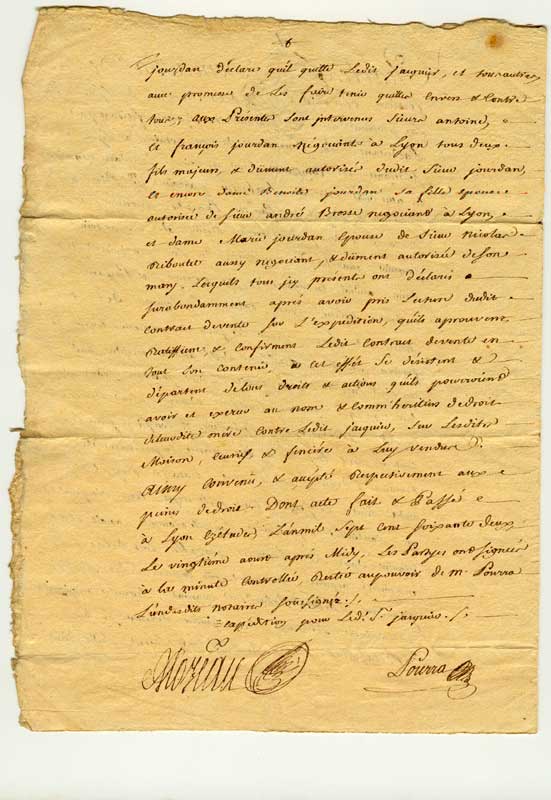 6
jourdan declare quil quitte Ledit jacquier, et tous autres
avec promesse de les faire tenir quitte envers & contre
tous ; aux Présentes sont intervenus Sieurs antoine,
et françois jourdan négociants à Lyon tous deux
fils majeurs, & dument autorisés dudit Sieur jourdan,
et encore dame Benoite jourdan sa fille epouse
autorisée de Sieur andré Brosse negociant à Lyon,
et dame Marie jourdan Epouse de Sieur Nicolas
Riboulet aussy negociant, & dument autorisée de son
mary. Lesquels tous jcy présents ont déclaré
surabondamment après avoir pris Lecture dudit
contract devente sur L'expédition, quils aprouvent,
Ratiffient, & confirment Ledit Contract devente en
tout son contenu à cet effét se désistent &
départent detous droits & actions quils pouvroient
avoir et exercer au nom & comme héritiers dedroit
deladite mère contre Ledit jacquier, sur Lesdites
Maison, & à Luy vendues
Aussy convenu, & accépté Respectivement aux
peines dedroit. Dont acte fait & Passé
à Lyon Ezétudes L'anmil Sept cent soixante deux
Le vingtième aoust après Midy, Les Partyes ont signées
à la minute Controllée Restée aupouvoir de m.e Pourra
L'undesdits notaires soussignés ./.
Expédition pour Ledt. Sr. jacquier ./.
Moreau Pourra